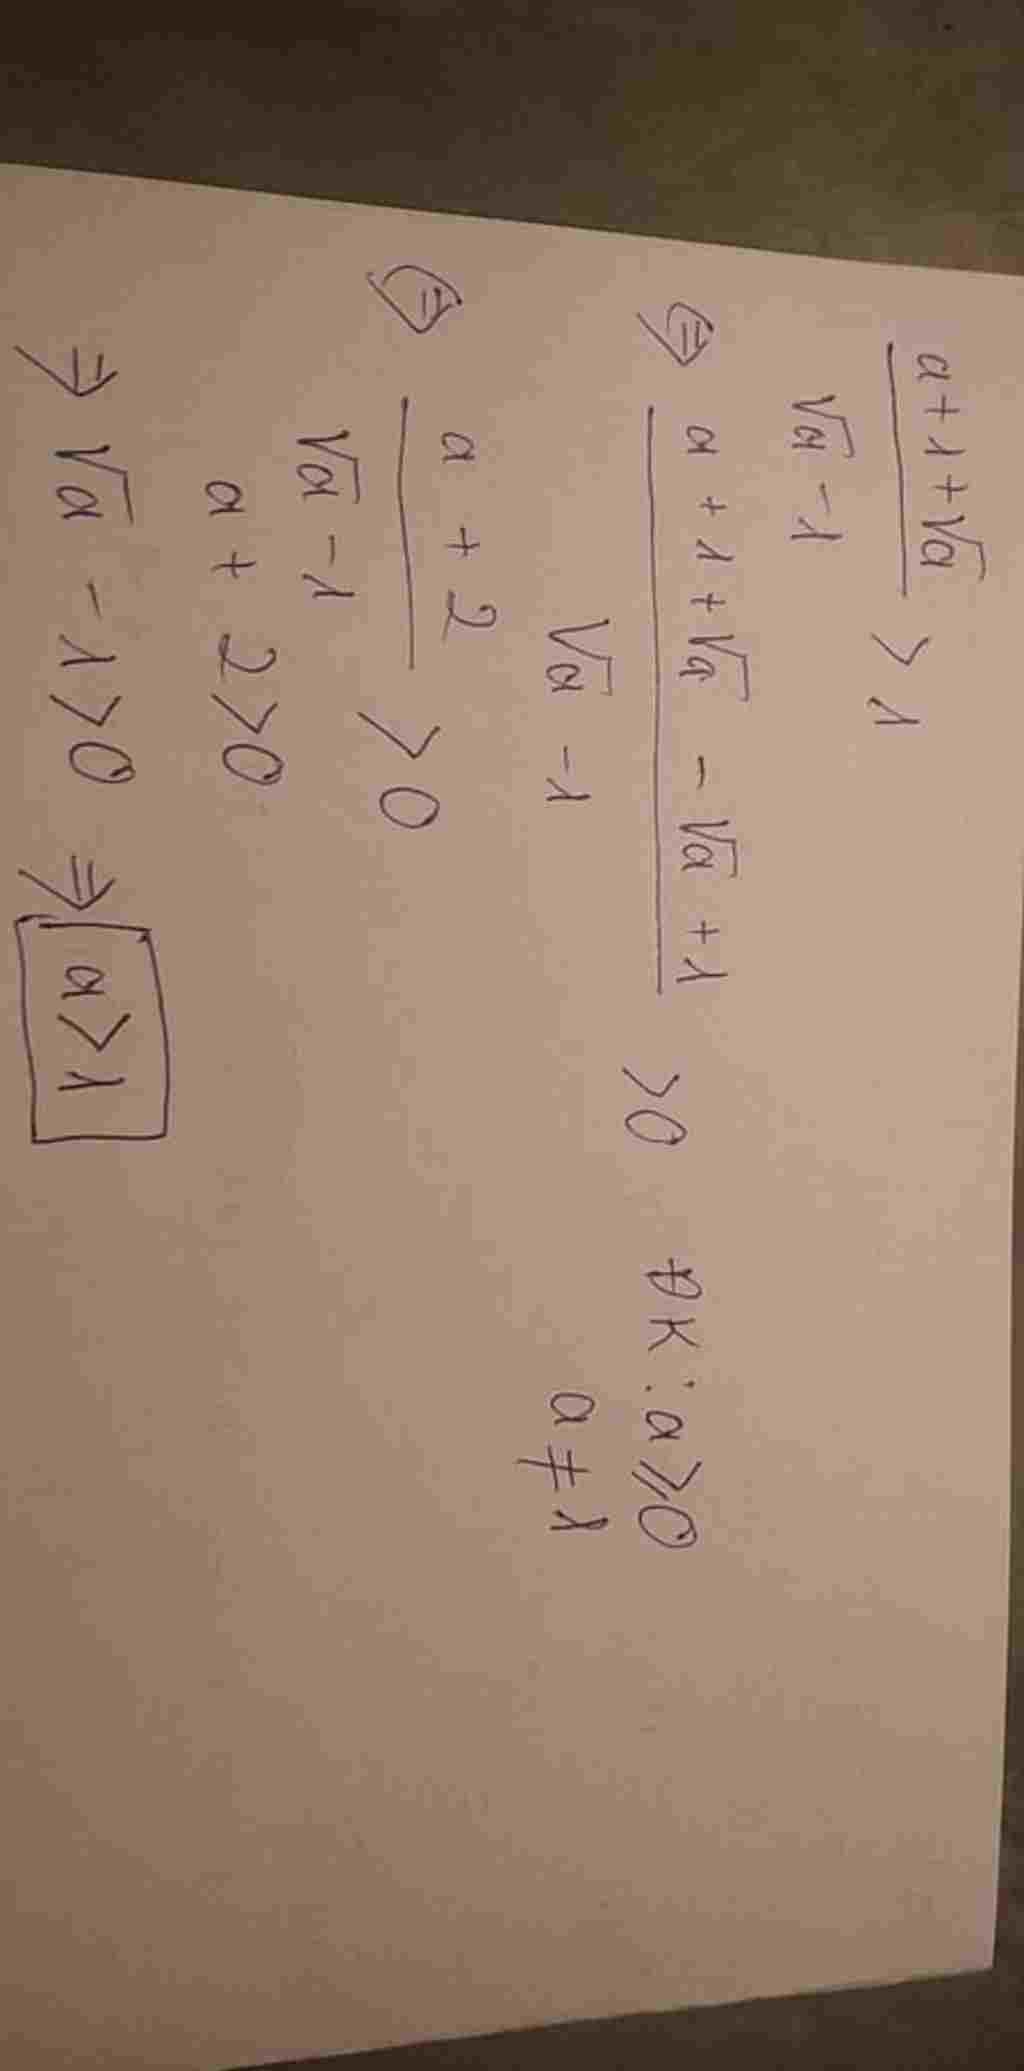 (a+1+√a)/(√a-1) > 1
⇔ (a+1+√a-√a+1)/(√a-1) > 0 ĐK: a ≥ 0
a ≠ 1
⇔ (a+2)/(√a-1) > 0
a+2>0
⇒ √a-1>0 ⇒ a>1